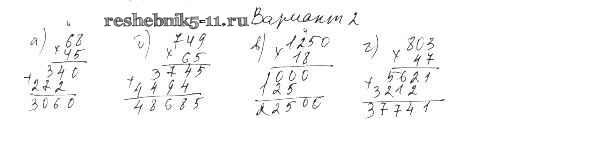 reshebnik5-11.ru Вариант 2
а) 68
× 45
340
+ 272
3060
б) 749
× 65
3745
+ 4494
48685
в) 1250
× 18
1000
125
22500
г) 803
× 47
5621
+ 3212
37741